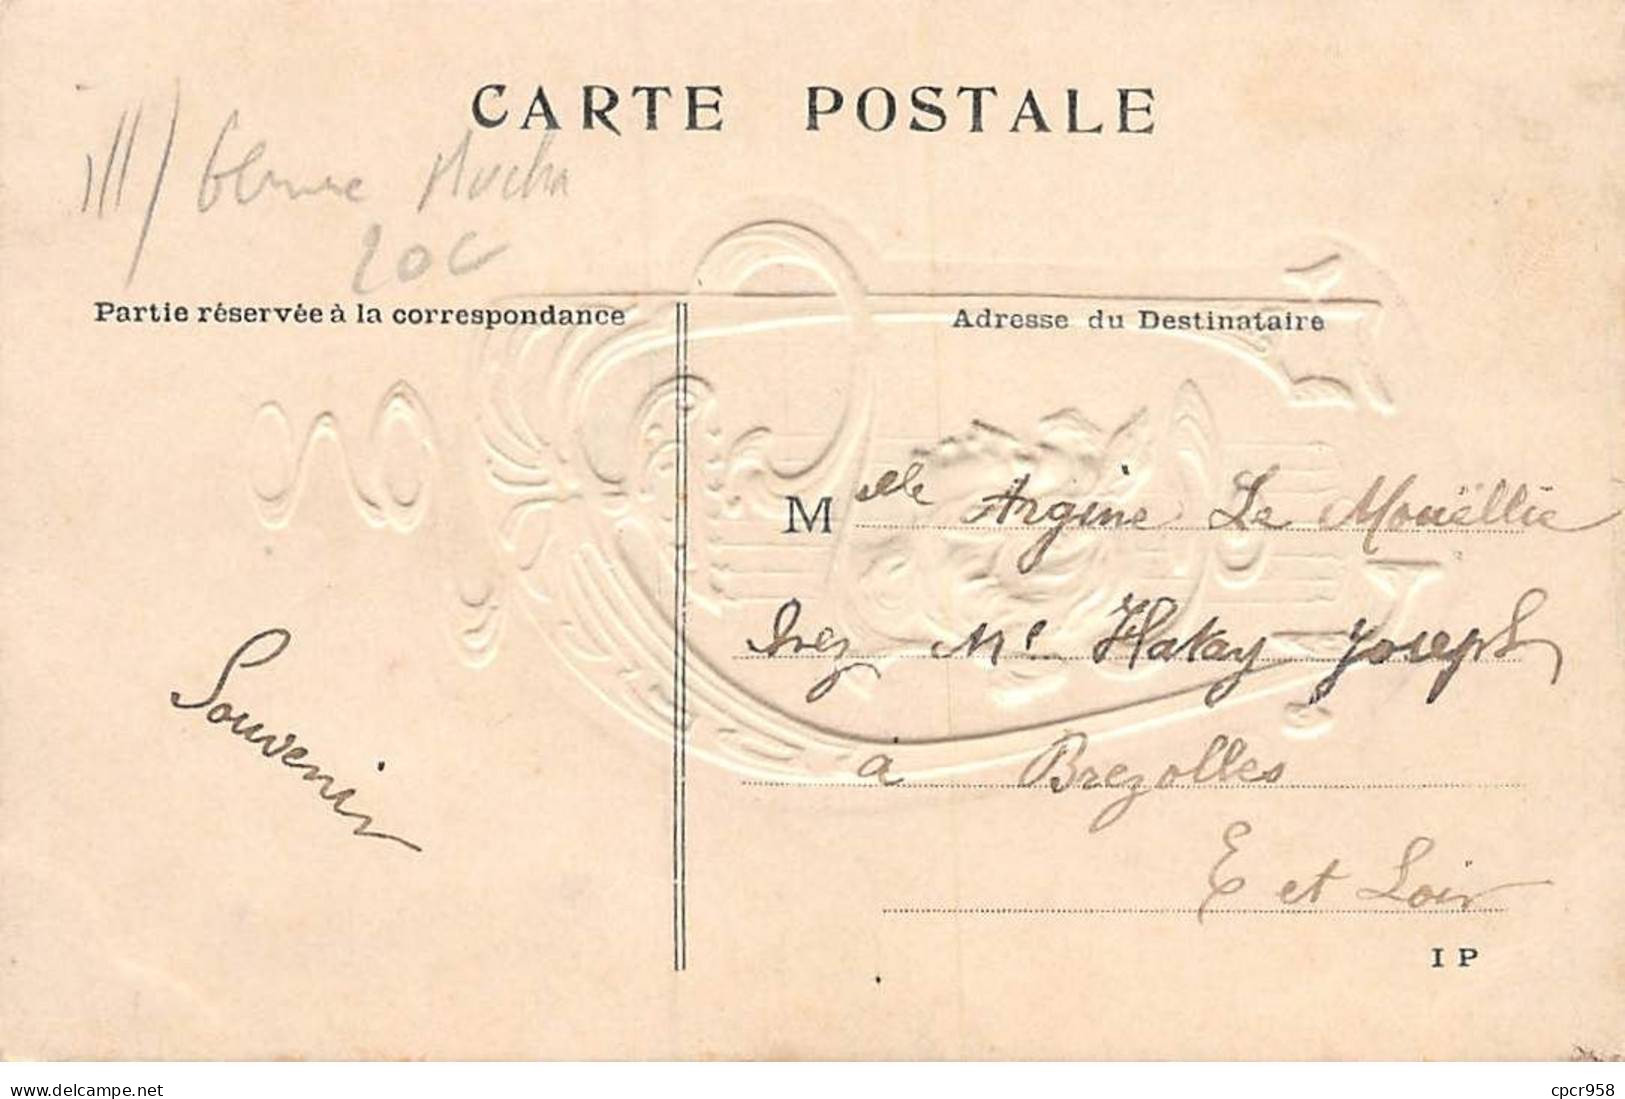 CARTE POSTALE
Ill/ Genre Mucha
20c
Partie réservée à la correspondance
Adresse du Destinataire
Melle Argine Le Mouëllic
chez Mr Hakay Joseph
Souvenir
à Brezolles
E et Loir
I P
www.delcampe.net
cpcr958